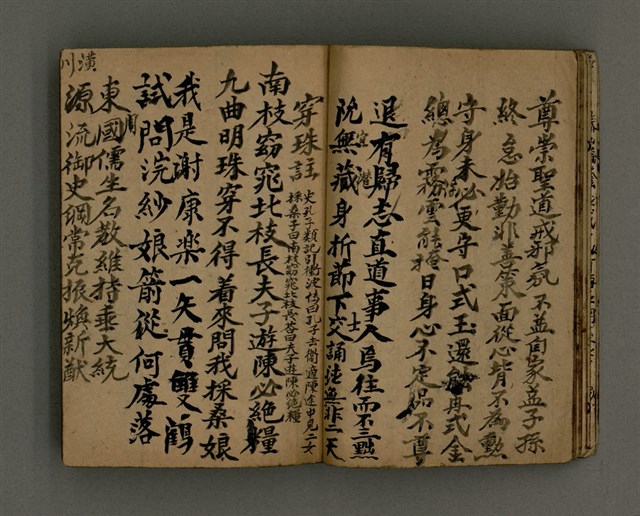 尊崇聖道戒邪氛不益自家益子孫
終怠始勤非善策面從心背不為勲
守身未必更守口式玉還能再式金
總為霧雲能捲日身心不定品不尊
退有歸志直道事人焉往而不三黜
阮無藏身折節下交士誦法無非二天
穿珠註
史孔子類記引衝波傳曰孔子去衛適陳途中見二女
採桑子曰南枝窈窕北枝長答曰夫子遊陳必絶糧
南枝窈窕北枝長夫子遊陳必絶糧
九曲明珠穿不得着來問我採桑娘
我是謝康樂一矢貫雙鶴
試問浣紗娘箭從何處落
東國儒生名教維持垂大統
周
源流御史綱常克振煥新猷
潢川